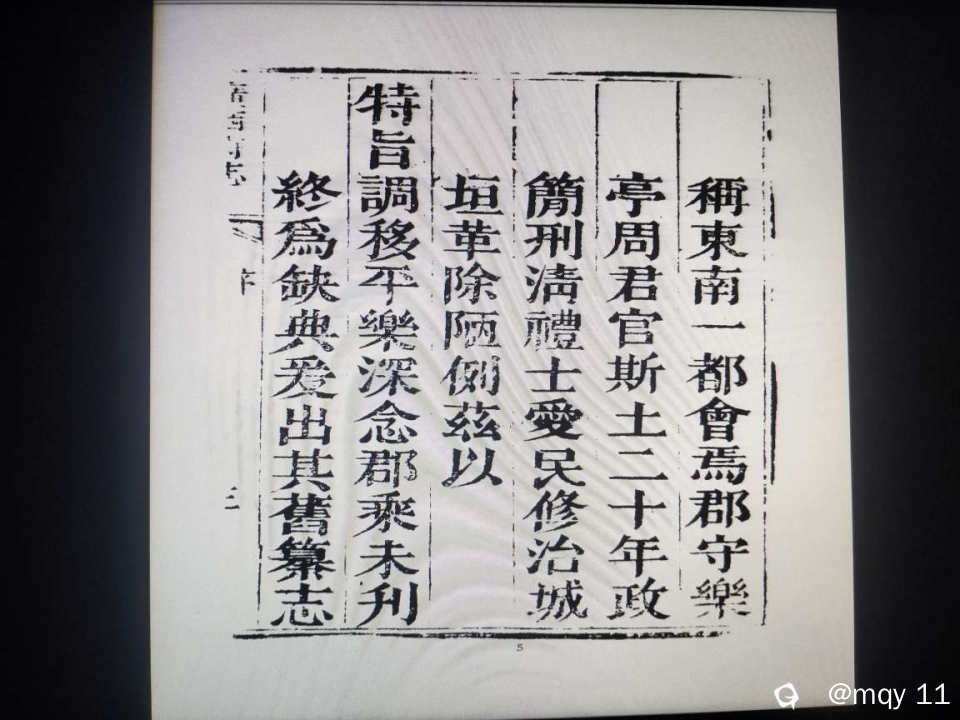 稱東南一都會焉郡守樂
亭周君官斯土二十年政
簡刑淸禮士愛民修治城
垣革除陋例茲以
特旨調移平樂深念郡乘未刋
終爲缺典爰出其舊纂志
序
三
5
@mqy 11